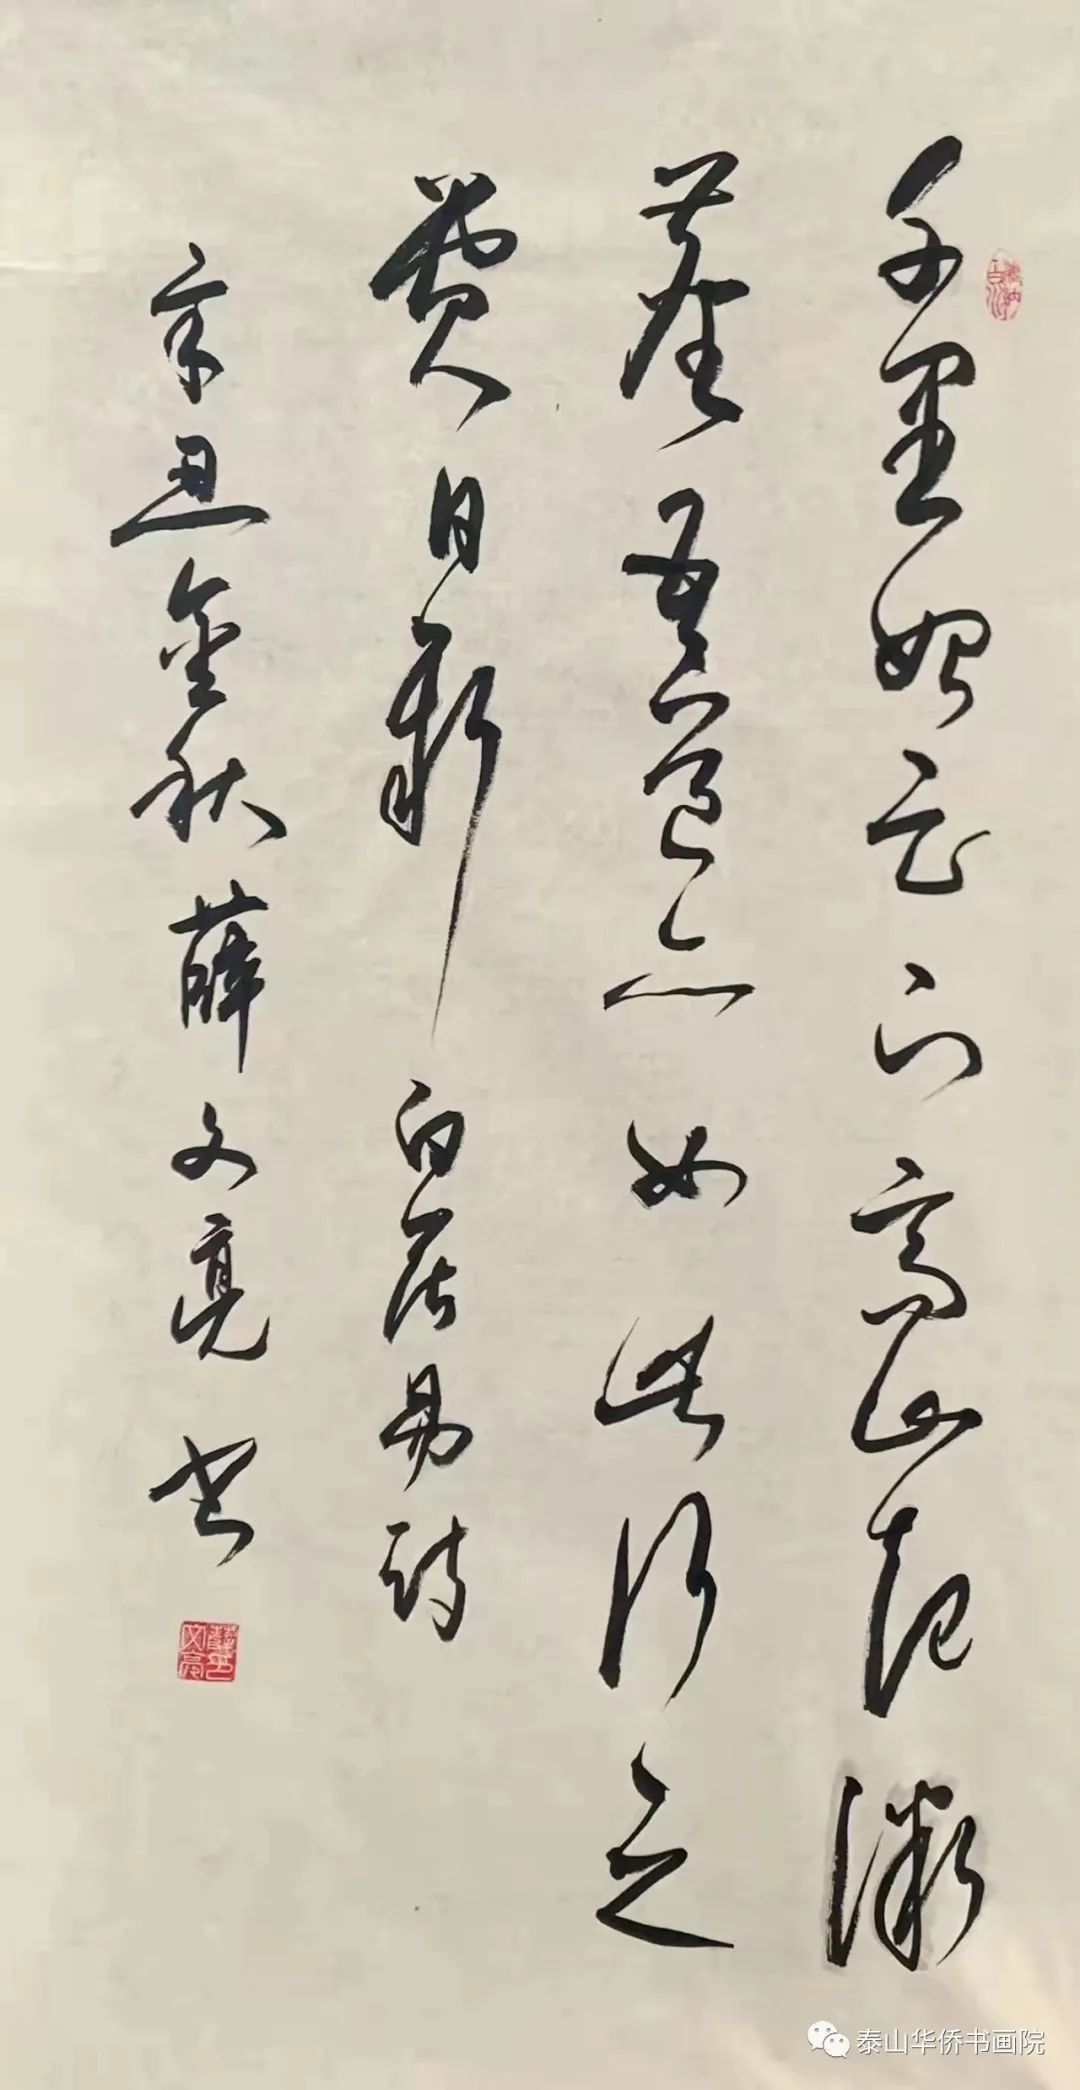 千里始足下高山起微
尘吾道亦如此行之
贵日新白居易诗
辛丑金秋薛文亮书
泰山华侨书画院